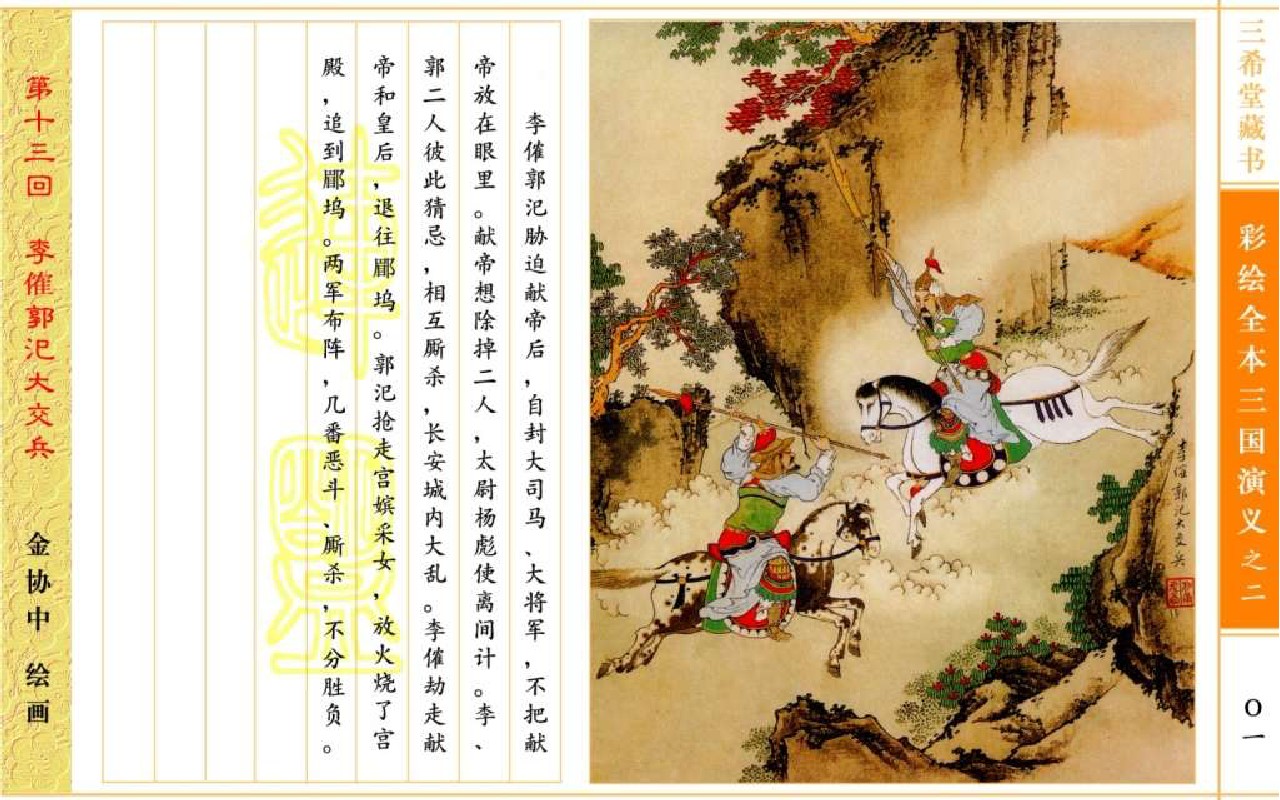 三希堂藏书
彩绘全本三国演义之二
〇一
李傕郭汜大交兵
李傕郭汜胁迫献帝后，自封大司马、大将军，不把献
帝放在眼里。献帝想除掉二人，太尉杨彪使离间计。李、
郭二人彼此猜忌，相互厮杀，长安城内大乱。李傕劫走献
帝和皇后，退往郿坞。郭汜抢走宫嫔采女，放火烧了宫
殿，追到郿坞。两军布阵，几番恶斗、厮杀，不分胜负。
第十三回 李傕郭汜大交兵 金协中 绘画